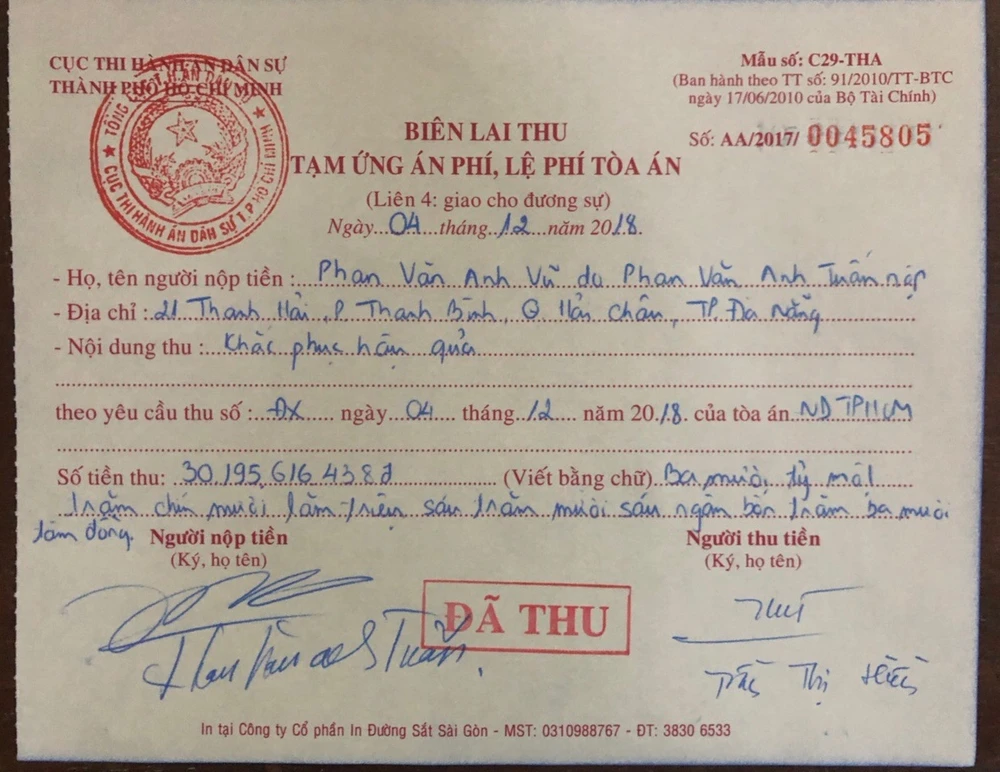 CỤC THI HÀNH ÁN DÂN SỰ
THÀNH PHỐ HỒ CHÍ MINH
TỔNG CỤC THI HÀNH ÁN DÂN SỰ
CỤC THI HÀNH ÁN DÂN SỰ T.P HỒ CHÍ MINH
Mẫu số: C29-THA
(Ban hành theo TT số: 91/2010/TT-BTC
ngày 17/06/2010 của Bộ Tài Chính)
Số: AA/2017/ 0045805
BIÊN LAI THU
TẠM ỨNG ÁN PHÍ, LỆ PHÍ TÒA ÁN
(Liên 4: giao cho đương sự)
Ngày...04...tháng...12...năm 2018.
- Họ, tên người nộp tiền : Phan Văn Anh Vũ do Phan Văn Anh Tuấn nộp
- Địa chỉ : 21 Thanh Hải, P. Thanh Bình, Q Hải Châu, TP. Đà Nẵng
- Nội dung thu : Khắc phục hậu quả
theo yêu cầu thu số : ĐX ngày 04 tháng 12 năm 2018 của tòa án ND TPHCM
Số tiền thu: 30.195.616.438đ (Viết bằng chữ) Ba mười tỷ một
trăm chín mười lăm triệu sáu trăm mười sáu ngàn bốn trăm ba mười
tám đồng.
Người nộp tiền
(Ký, họ tên)
Người thu tiền
(Ký, họ tên)
ĐÃ THU
Phan Văn Anh Tuấn
Thị
In tại Công ty Cổ phần In Đường Sắt Sài Gòn - MST: 0310988767 - ĐT: 3830 6533